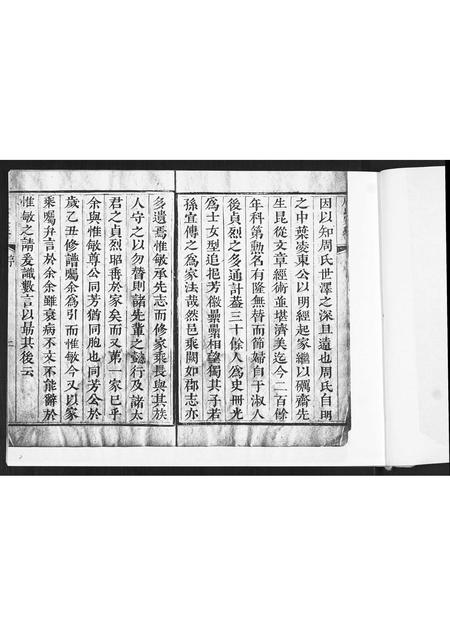 因以知周氏世澤之深且遠也周氏自明
之中葉凌東公以明經起家繼以礪齋先
生昆從文章經術並堪濟美迄今二百餘
年科第勳名有隆無替而節婦自于淑人
後貞烈之多通計葢三十餘人爲史冊光
爲士女型追挹芳徽纍纍相望獨其子若
孫宣傳之爲家法哉然邑乘闕如郡志亦
多遺焉惟敏承先志而修家乘長與其族
人守之以勿替則諸先輩之懿行及諸太
君之貞烈耶垂於家矣而又第一家已乎
余與惟敏尊公同芳猶同胞也同芳公於
歲乙丑修譜囑余爲引而惟敏今又以家
乘囑弁言於余余雖衰病不文不能辭於
惟敏之請爰識數言以勗其後云
序
二